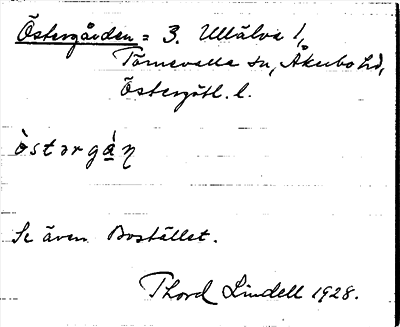 Östergården = 3. Ullälva 1,
Törnevalla sn, Åkerbo hd,
Östergötl. l.
òstərgá̱ꞃ
Se även Bostället.
Thord Lindell 1928.